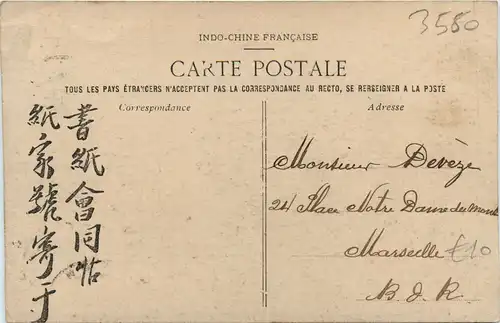 3550
INDO-CHINE FRANÇAISE
CARTE POSTALE
TOUS LES PAYS ÉTRANGERS N'ACCEPTENT PAS LA CORRESPONDANCE AU RECTO, SE RERSEIGNER A LA POSTE
Correspondance
Adresse
書紙會同帖
紙家號寄于
Monsieur Devèze
24 Place Notre Dame du mont
Marseille
€10
B. d. R.